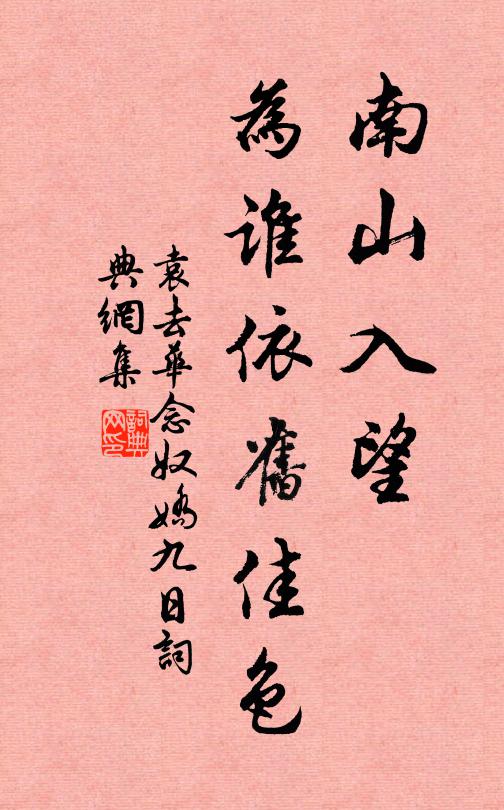 南山入望
為誰依舊佳色
袁去華念奴嬌九日詞
典網集
詞典網印